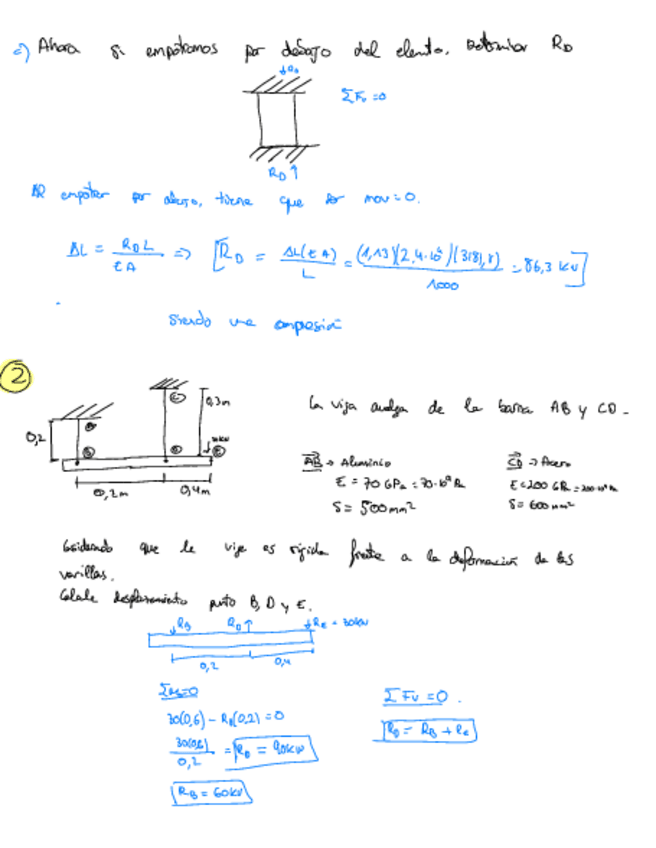 c) Ahora si empotramos por debajo del elemento. Determinar R_D
↓R_D
ΣFv = 0
R_D ↑
Al empotrar por abajo, tiene que ser mov = 0.
ΔL = R_D L / E A => [R_D = ΔL(E A) / L = (1,13)(2,4·10⁵)(318,8) / 1000 = 86,3 kN]
Siendo una compresión
2
0,3m
0,2
30kN
0,2m
0,4m
La viga cuelga de la barra AB y CD.
AB → Aluminio
CD → Acero
E = 70 GPa = 70·10⁹ Pa
E = 200 GPa = 200·10⁹ Pa
S = 500 mm²
S = 600 mm²
Considerando que la viga es rígida frente a la deformación de las
varillas.
Calcule desplazamiento punto B, D y E.
↓R_B
R_D↑
↓R_E = 30kN
0,2
0,4
ΣM_B=0
ΣFv = 0.
30(0,6) - R_D(0,2) = 0
R_D = R_B + R_E
30(0,6) / 0,2 = R_D = 90kN
R_B = 60kN